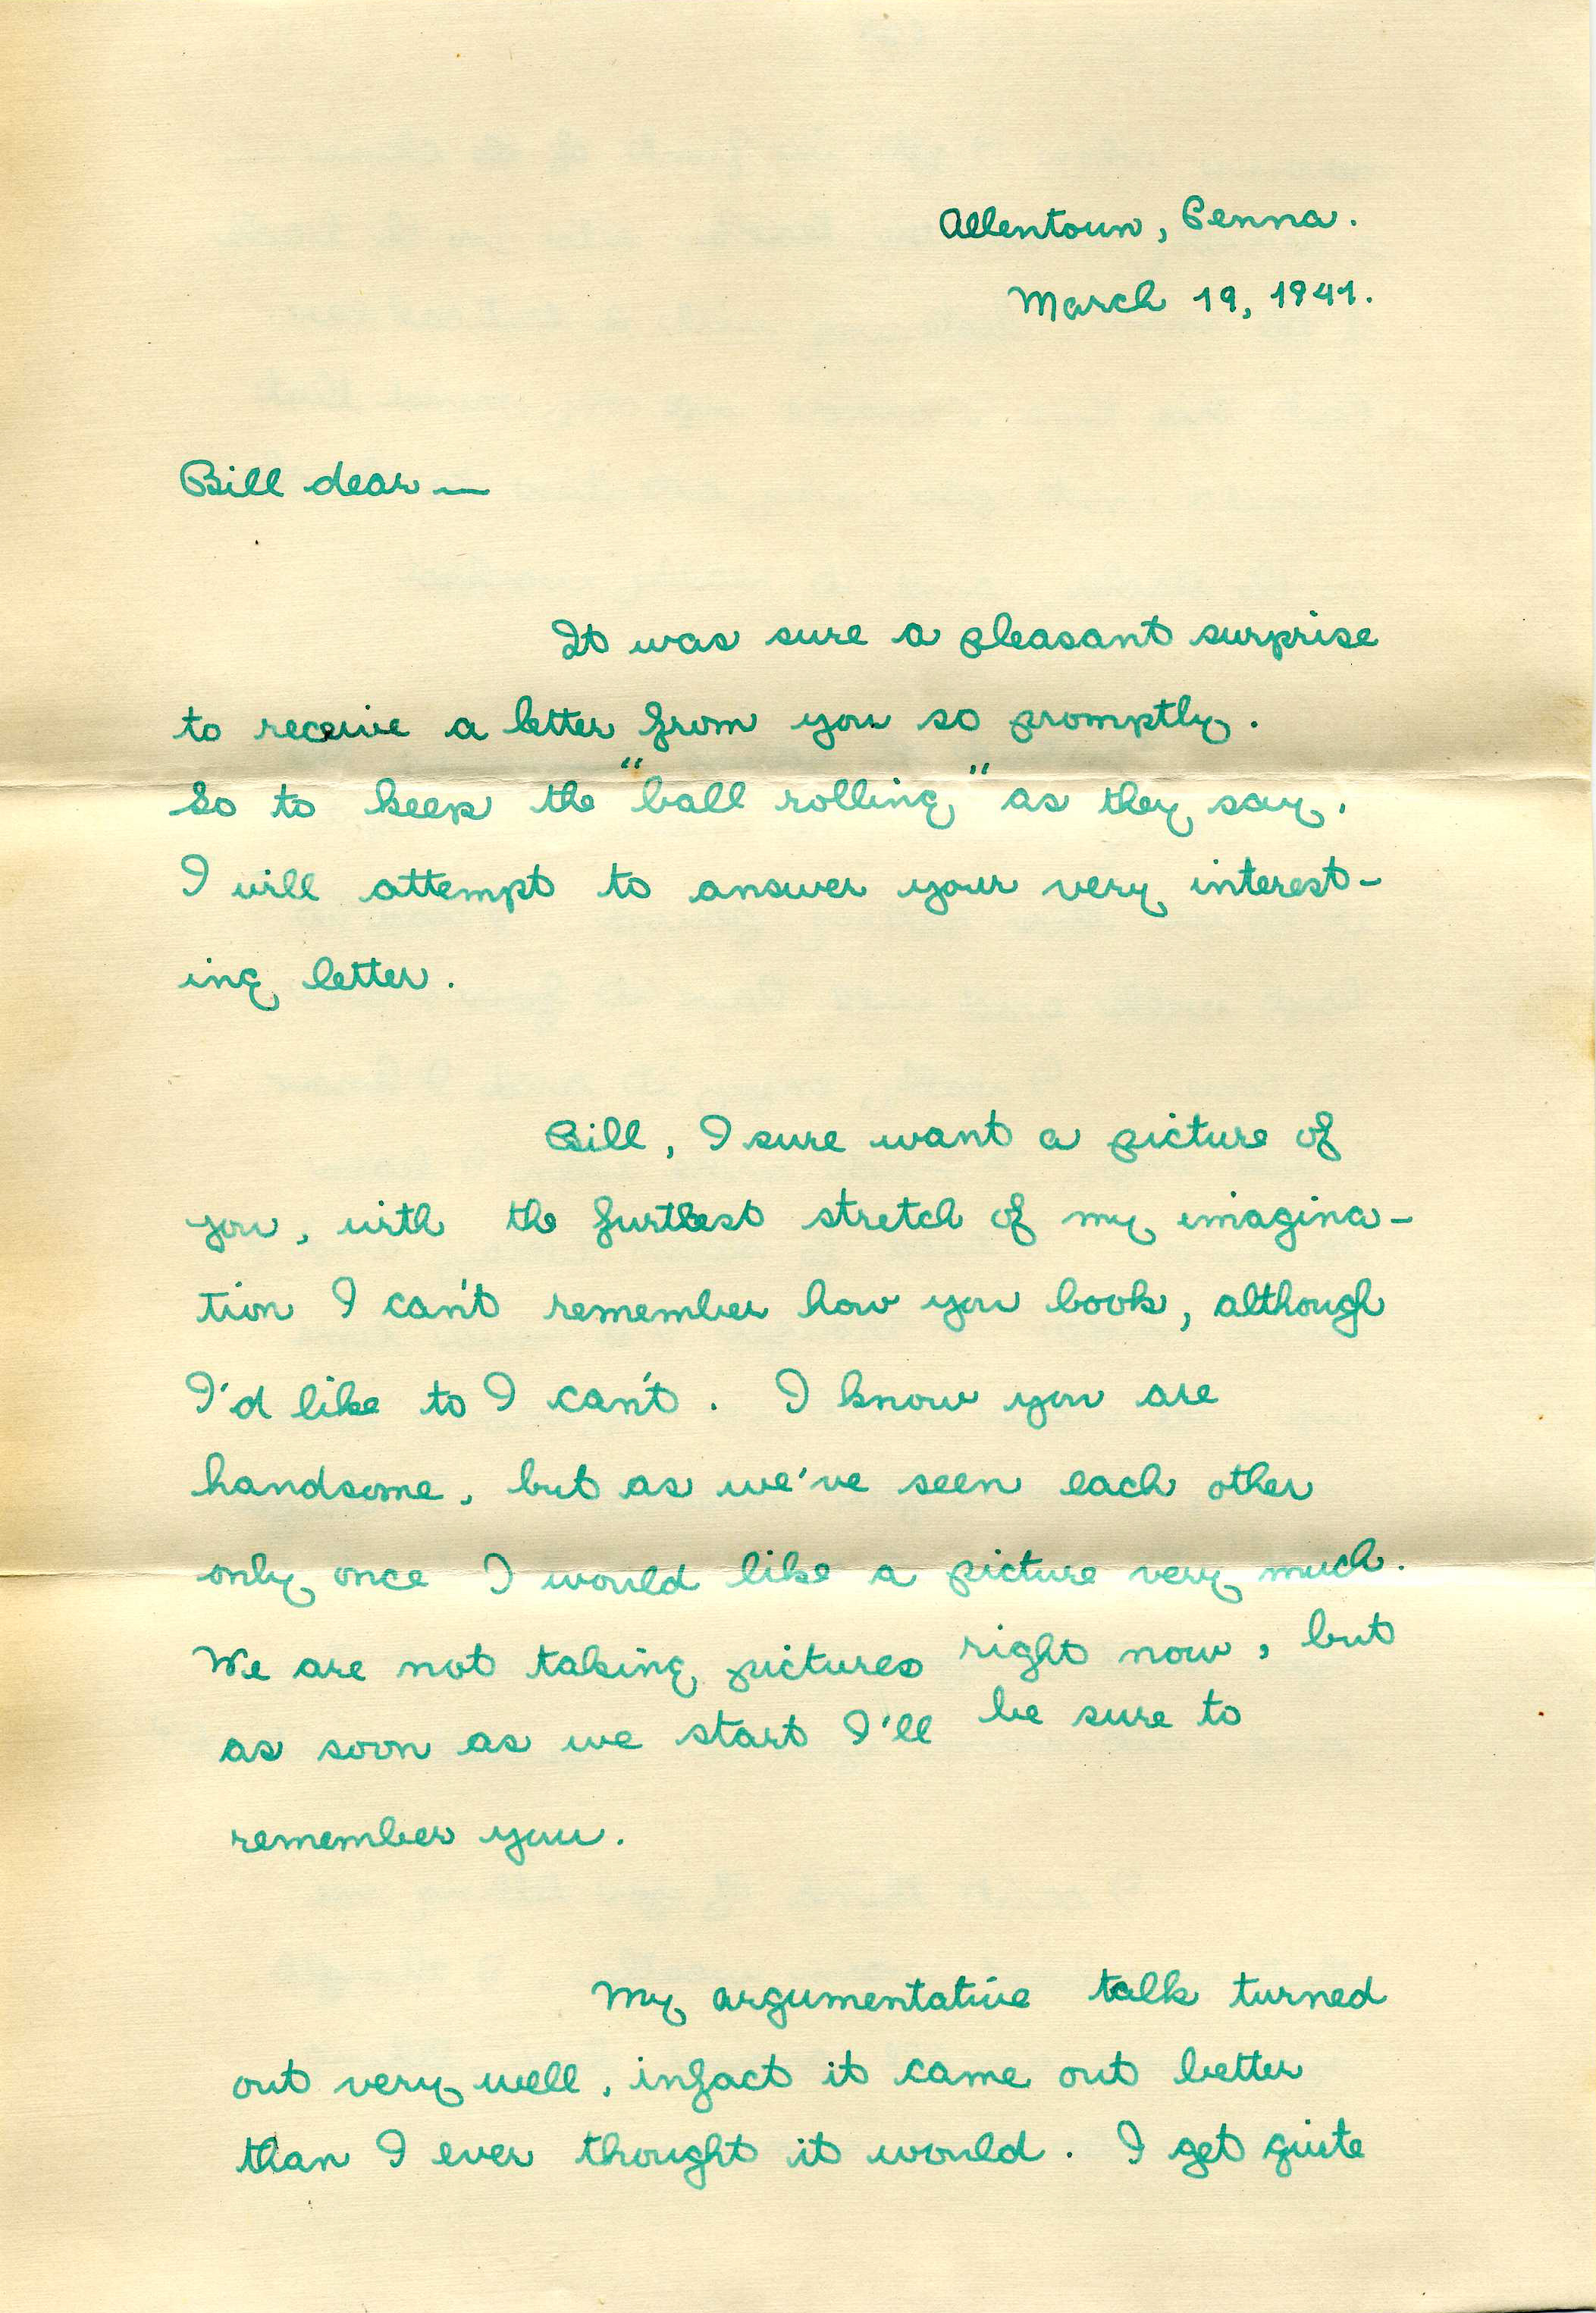 Allentown, Penna.
March 19, 1941.
Bill dear —
It was sure a pleasant surprise
to receive a letter from you so promptly.
So to keep the "ball rolling" as they say,
I will attempt to answer your very interest-
ing letter.
Bill, I sure want a picture of
you, with the furtherest stretch of my imagina-
tion I can't remember how you look, although
I'd like to I can't. I know you are
handsome, but as we've seen each other
only once I would like a picture very much.
We are not taking pictures right now, but
as soon as we start I'll be sure to
remember you.
My argumentative talk turned
out very well, infact it came out better
than I ever thought it would. I get quite